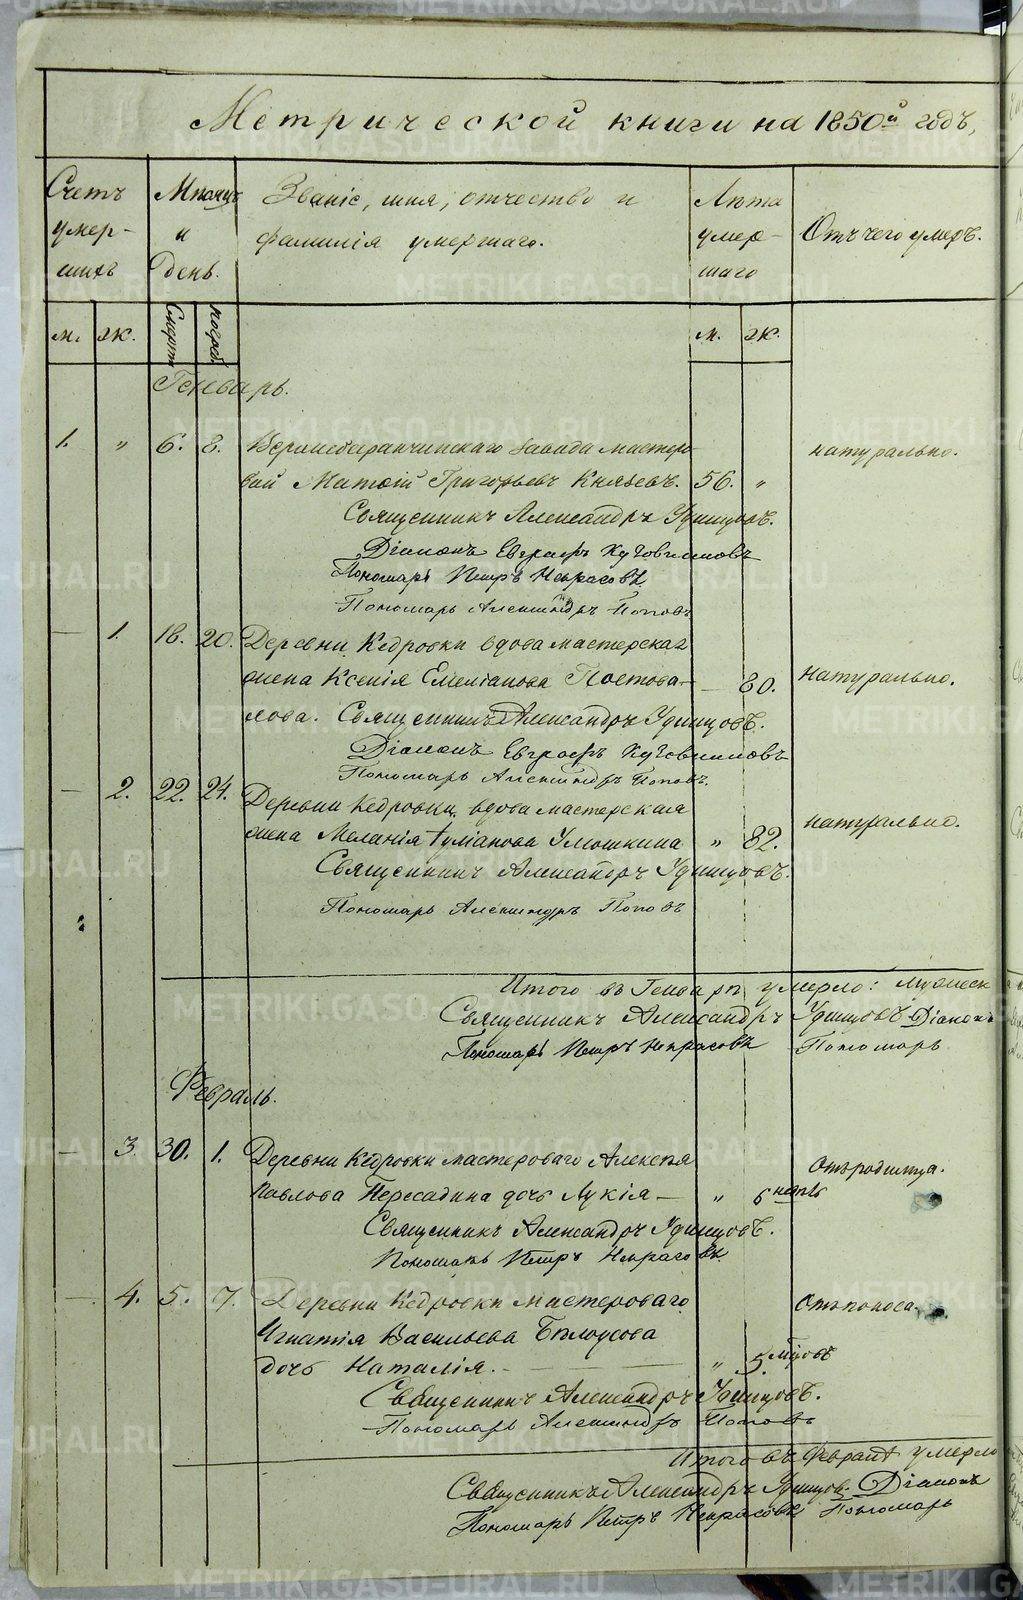 Метрической книги на 1850й годъ,
Счетъ умер- шихъ
Мѣсяцъ и день.
Званіе, имя, отчество и
фамилія умершаго.
Лѣта умер- шаго
Отъ чего умеръ.
м. ж. Смерт. погреб. м. ж.
Генварь.
1. „ 6. 8. Верхнебаранчинскаго завода мастеро- натурально.
вой Матѳій Григорьевъ Князевъ. 56. „
Священникъ Александръ Удинцовъ.
Діаконъ Евграфъ
Пономарь Петръ Некрасовъ
Пономарь Александръ Поповъ
— 1. 18. 20. Деревни Кедровки вдова мастерская
жена Ксенія Емельянова Постова- — 80. натурально.
лова. Священникъ Александръ Удинцовъ.
Діаконъ Евграфъ
Пономарь Александръ Поповъ.
— 2. 22. 24. Деревни Кедровки, вдова мастерская
жена Меланія Улюшкина „ 82. натурально.
Священникъ Александръ Удинцовъ.
Пономарь Александръ Поповъ
Итого въ Генварѣ умерло: мужеск
Священникъ Александръ Удинцовъ Діаконъ
Пономарь Петръ Некрасовъ Пономарь
Февраль.
— 3. 30. 1. Деревни Кедровки мастероваго Алексѣя Отъ родимца.
Павлова Пересадина дочь Лукія — „ 6 нѣть
Священникъ Александръ Удинцовъ.
Пономарь Петръ Некрасовъ.
— 4. 5. 7. Деревни Кедровки мастероваго Отъ поноса.
Игнатія Васильева Бѣлоусова
дочь Наталія. — „ 5. мцовъ
Священникъ Александръ Удинцовъ.
Пономарь Александръ Поповъ
Итого въ Февралѣ умерло
Священникъ Александръ Удинцовъ. Діаконъ
Пономарь Петръ Некрасовъ Пономарь
METRIKI.GASO-URAL.RU